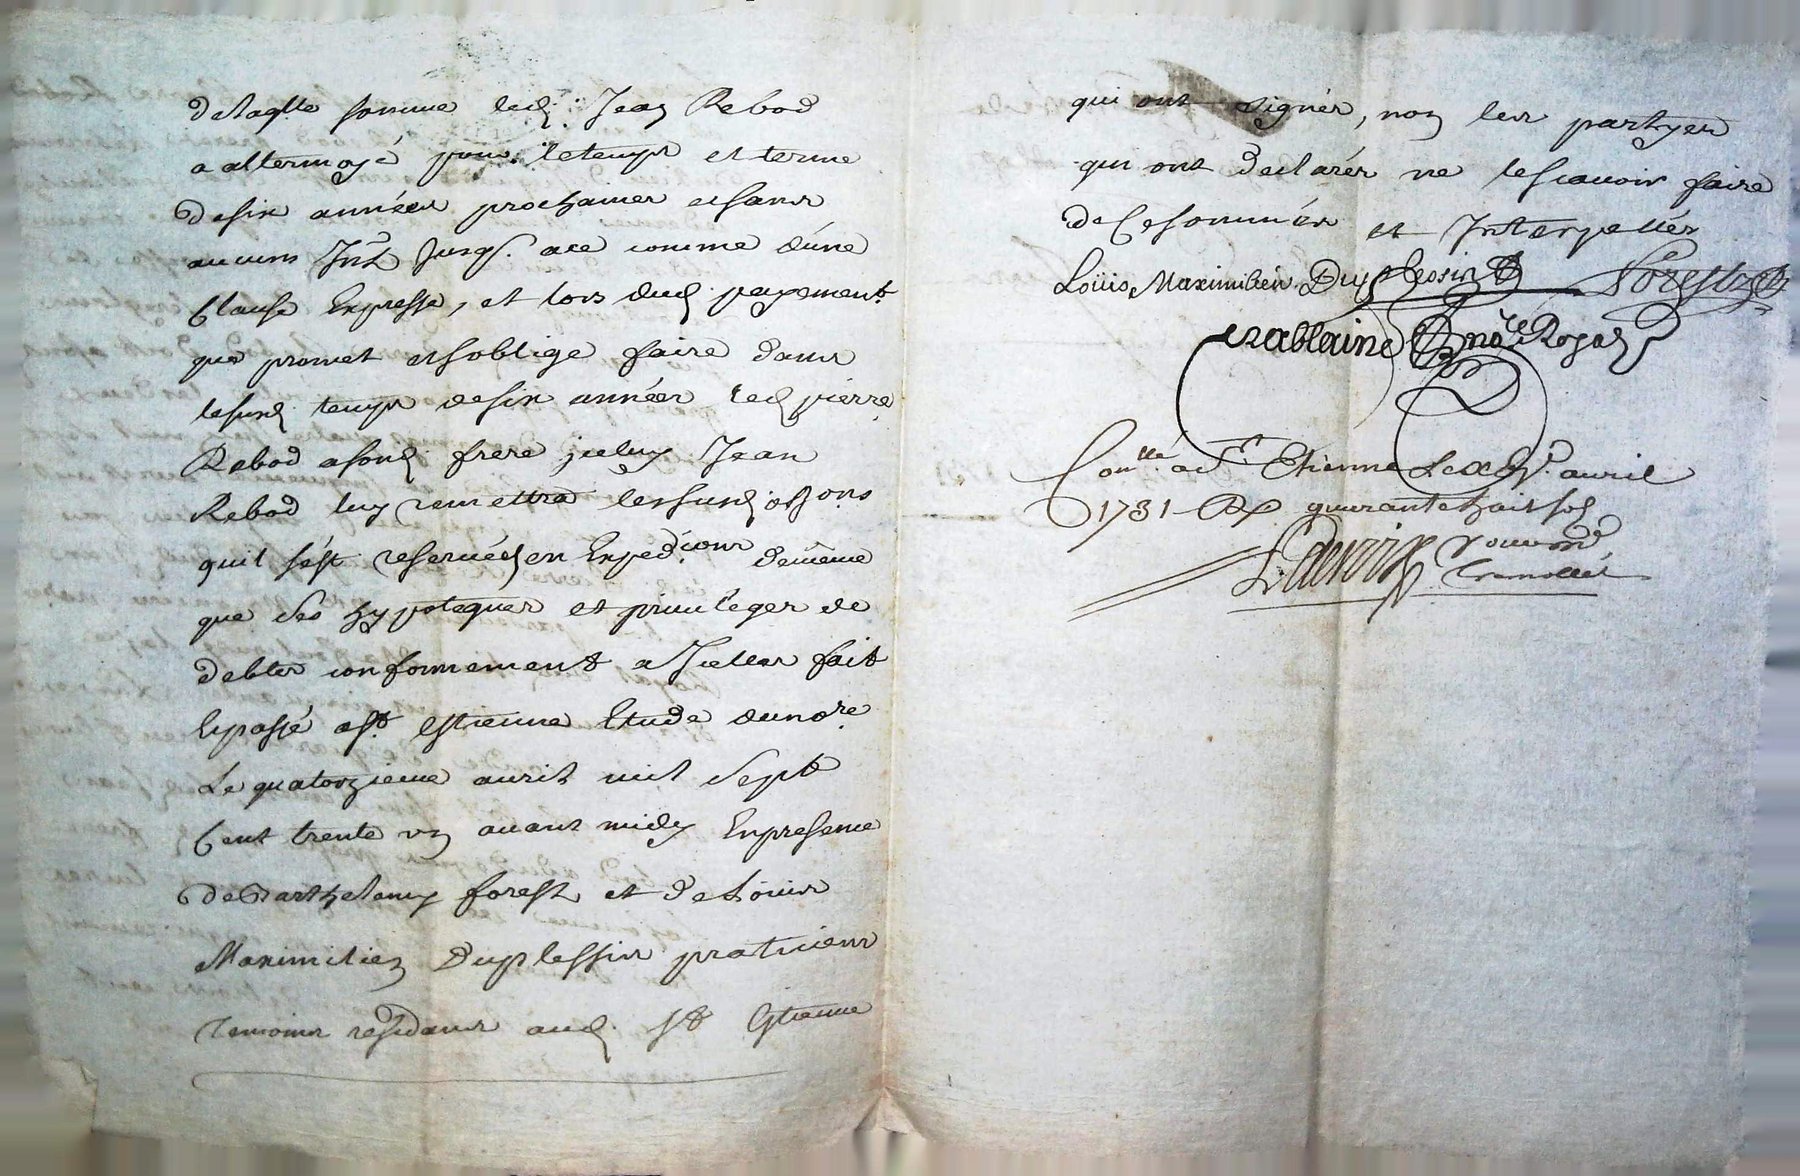 delaqlle somme led. Jean Rebod
a attermoyé pour letemps et terme
desix années prochaines et sans
aucuns Jusq. a ce comme dune
Clause Expresse, et lors dud. payement
que promet et soblige faire dans
lesusd. temps desix années led. pierre
Rebod a sond. frere jceluy Jean
Rebod luy remettra les susd.
quil s'est reservées en Expedons. deméme
que des hypoteques et privileges de
debtes conformement a Jcelles fait
Et passé a St. Estienne Etude du nore.
Le quatorzieme avril mil sept
Cent trente un avant midy En presence
de Barthelemy forest et de Loüis
Maximilien Duplessis praticiens
Temoins residans aud. St Estienne
qui ont signés, non les partyes
qui ont declarés ne le scavoir faire
de Ce sommés et Interpellés
Loüis Maximilien Duplessis Forest
Rablaine Nore Royal
Conllé. a St. Etienne Le avril
1731 R quarante huit sols